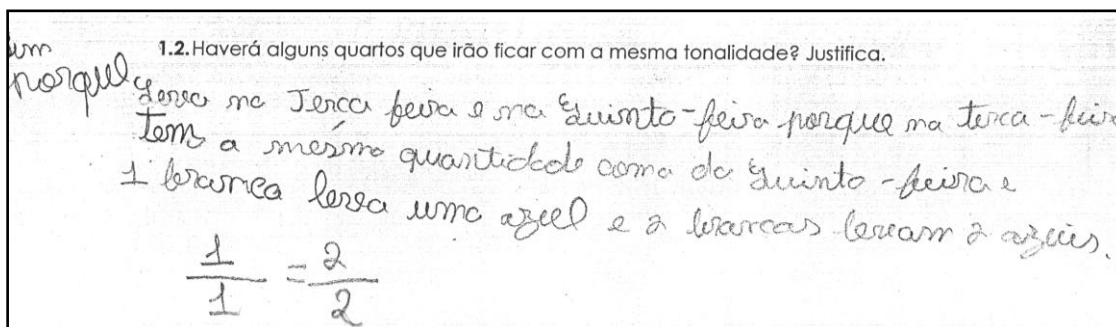 1.2. Haverá alguns quartos que irão ficar com a mesma tonalidade? Justifica.
porque
na Terca feira e na Quinta-feira porque na terca-feira
Tem a mesma quantidade como da Quinta-feira e
1 branca leva uma azul e 2 brancas levam 2 azuis.
1/1 = 2/2